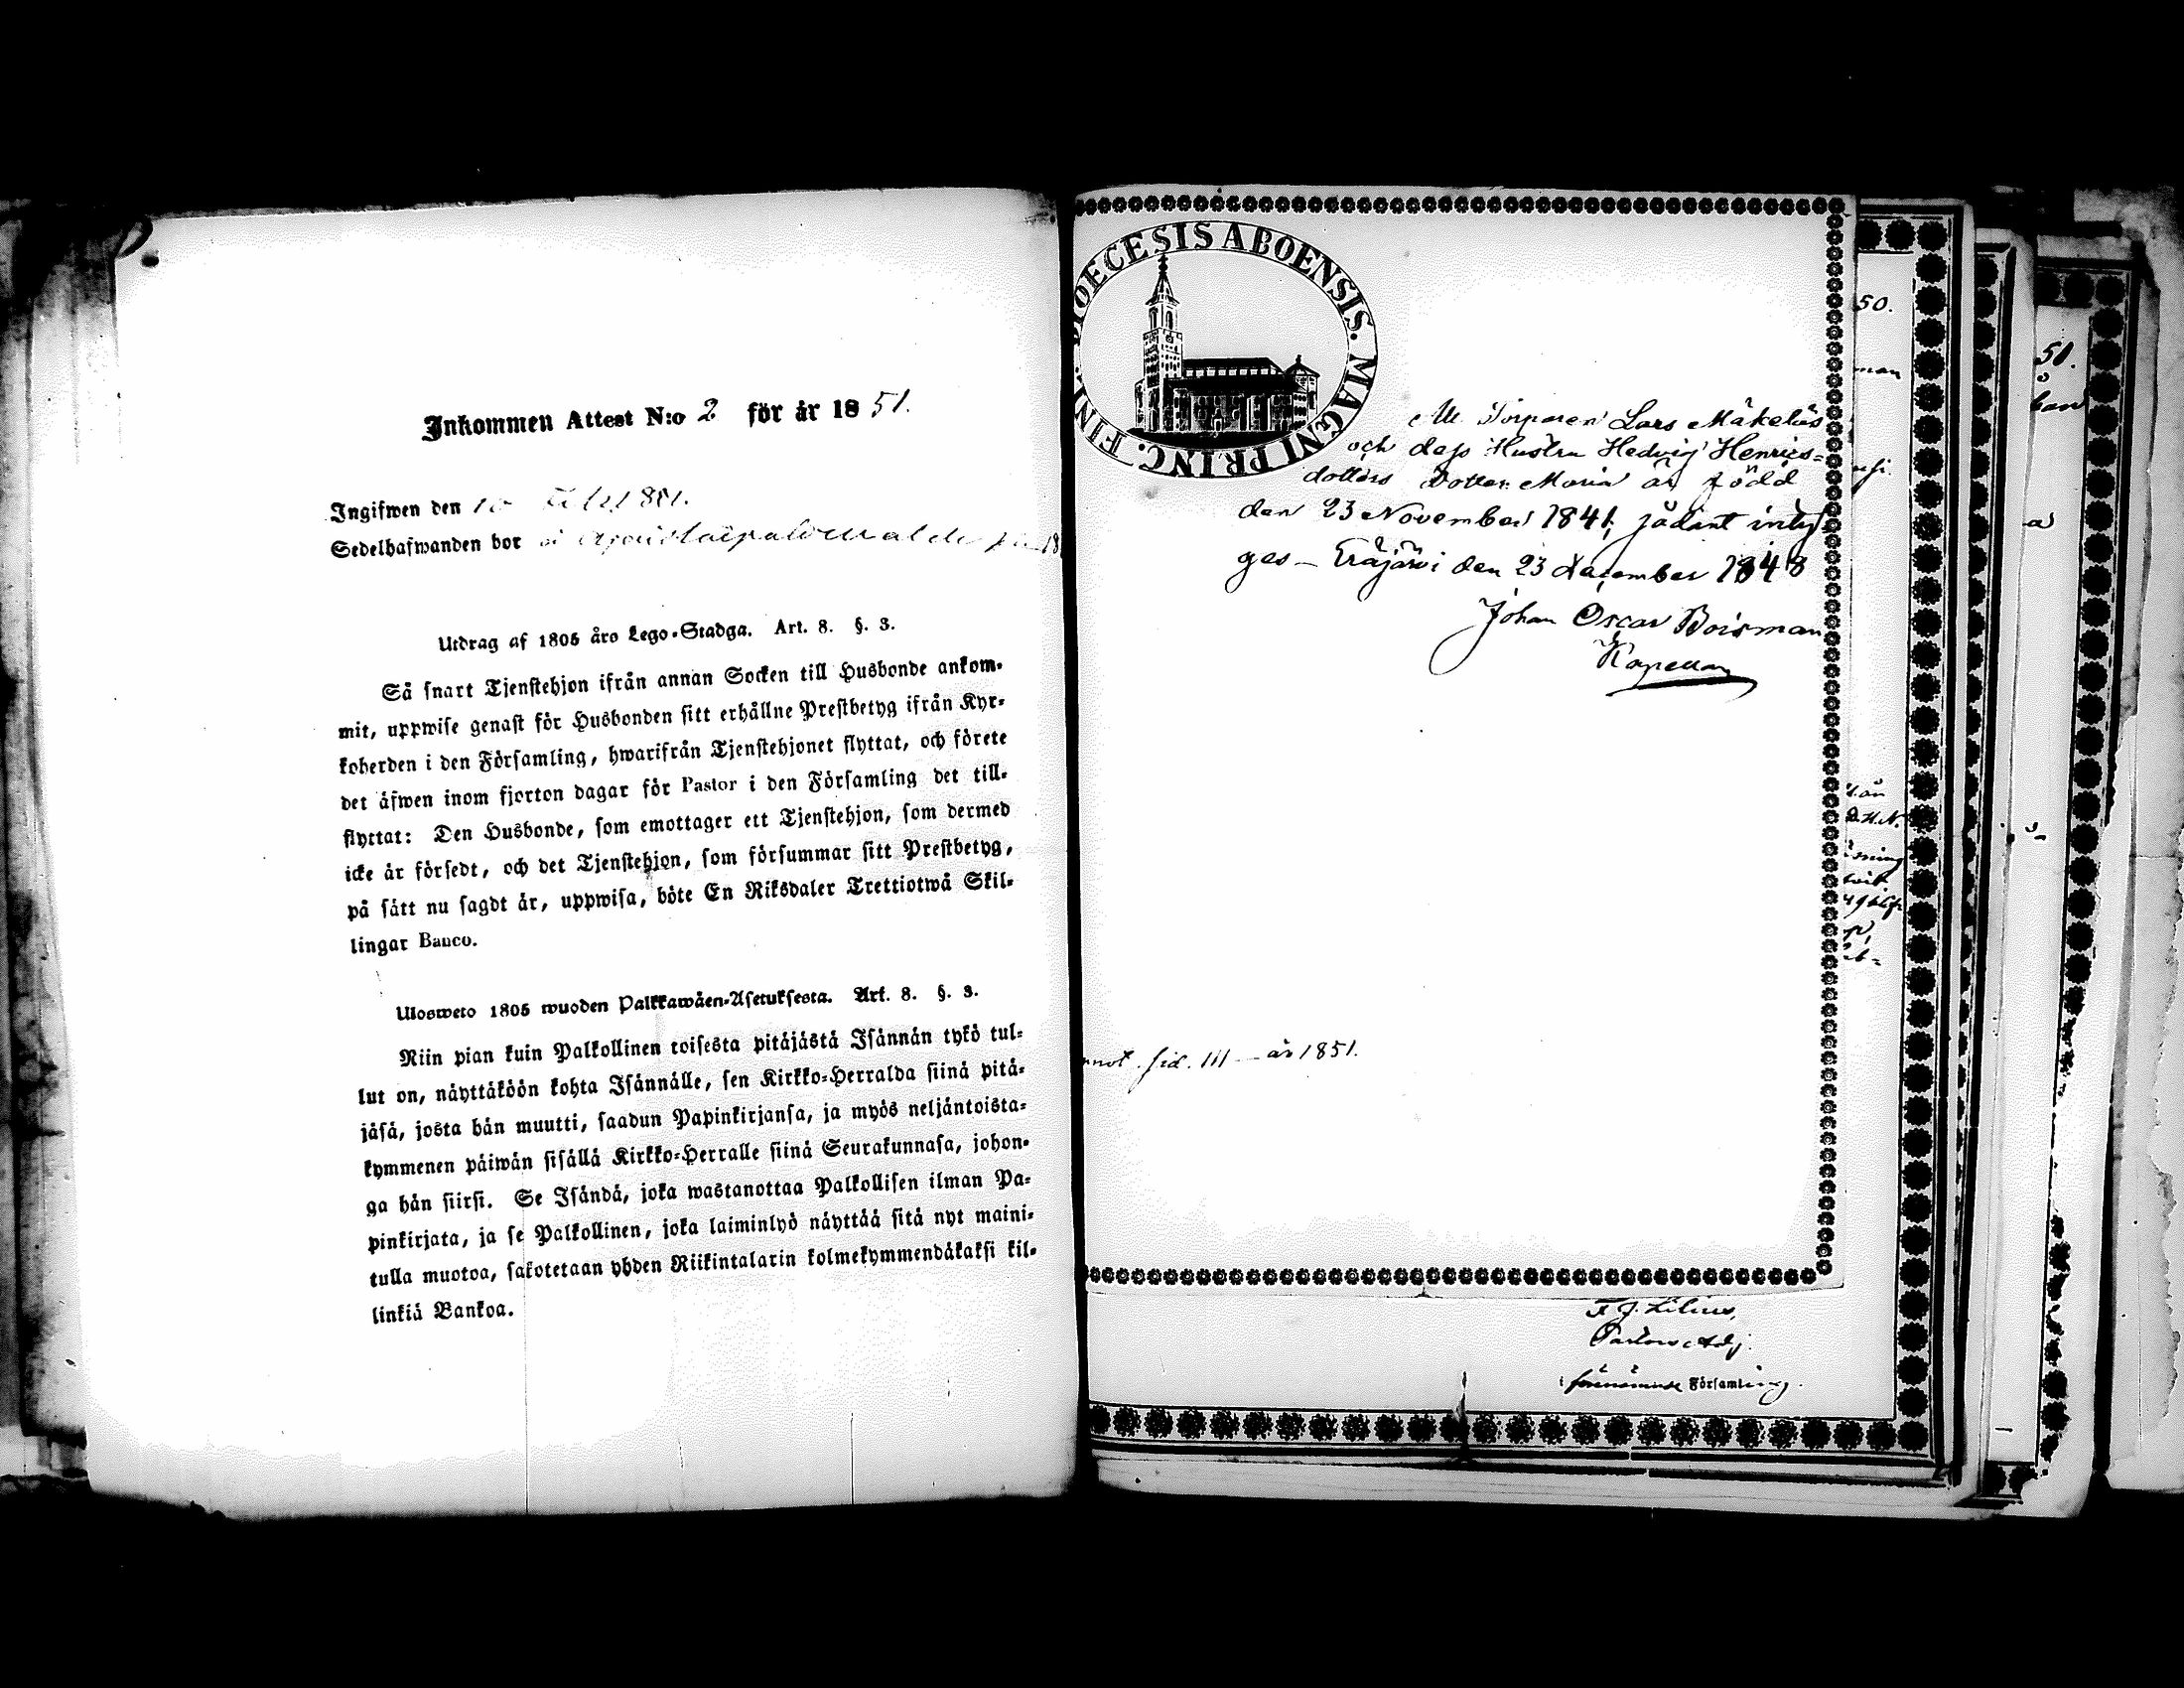 Inkommen Attest N:o 2 för år 1851.
Ingifwen den
Sedelhafwanden bor
Utdrag af 1805 års Lego-Stadga. Art. 8. §. 3.
Så snart Tjenstehjon ifrån annan Socken till Husbonde ankom-
mit, uppwise genast för Husbonden sitt erhållne Prestbetyg ifrån Kyr-
koherden i den Församling, hwarifrån Tjenstehjonet flyttat, och förete
det äfwen inom fjorton dagar för Pastor i den Församling det till-
flyttat: Den Husbonde, som emottager ett Tjenstehjon, som dermed
icke är försedt, och det Tjenstehjon, som försummar sitt Prestbetyg,
på sätt nu sagdt är, uppwisa, böte En Riksdaler Trettiotwå Skil-
lingar Banco.
Ulosweto 1805 wuoden Palkkawäen-Asetuksesta. Art. 8. §. 3.
Niin pian kuin Palkollinen toisesta pitäjästä Isännän tykö tul-
lut on, näyttäköön kohta Isännälle, sen Kirkko-Herralda siinä pitä-
jäsä, josta hän muutti, saadun Papinkirjansa, ja myös neljäntoista-
kymmenen päiwän sisällä Kirkko-Herralle siinä Seurakunnasa, johon-
ga hän siirsi. Se Isändä, joka wastanottaa Palkollisen ilman Pa-
pinkirjata, ja se Palkollinen, joka laiminlyö näyttää sitä nyt maini-
tulla muotoa, sakotetaan yhden Riikintalarin kolmekymmendäkaksi kil-
linkiä Bankoa.
DIOECESIS ABOENSIS. MAGNI PRINC. FINL.
Att Torparen Lars Mäkeläs
och dess Hustru Hedvig Henrics=
dotters Dotter Maria är född
den 23 November 1841, sådant inty
ges – Eräjärvi den 23 December 1848
Johan Oscar Boisman
Kapellan
nnot. sid. 111 – år 1851.
F. J. Lilius,
Pastors Adj.
i förenämnde Församling.
50.
man
51.